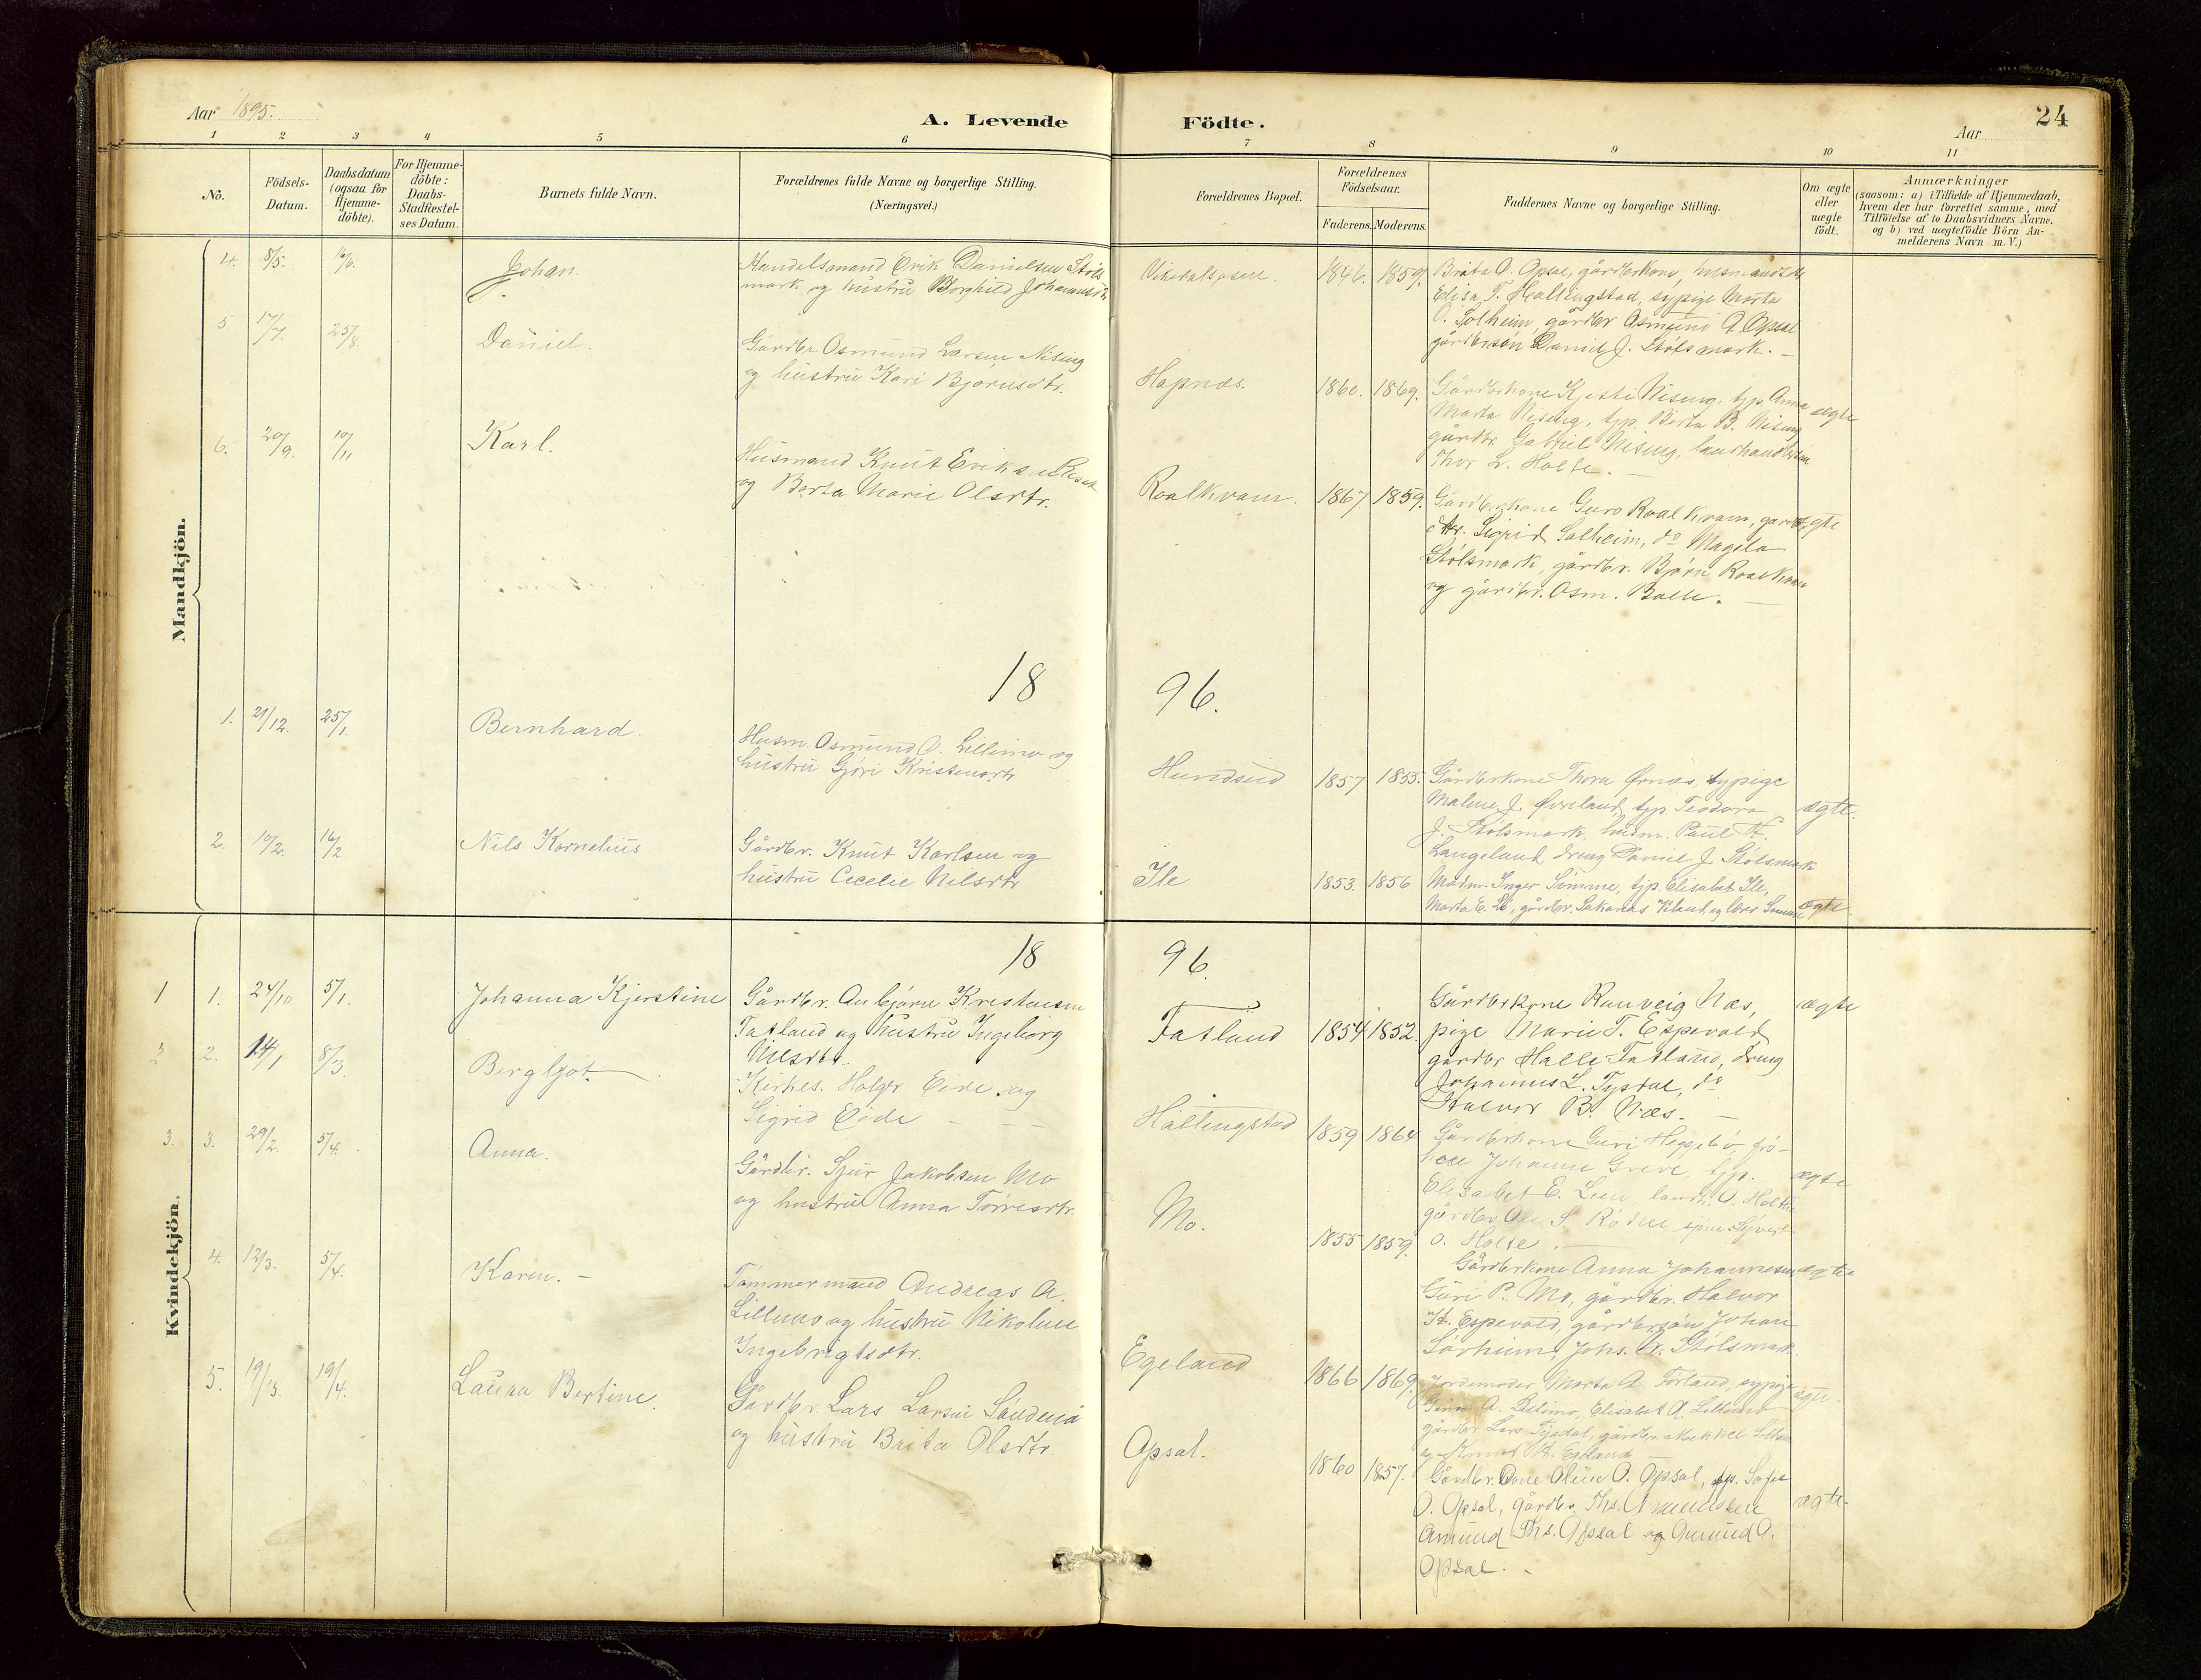 Aar 1895.
A. Levende Födte.
24
Aar
1 2 3 4 5 6 7 8 9 10 11
No.
Födsels-Datum.
Daabsdatum (ogsaa for Hjemmedöbte).
For Hjemmedöbte: Daabs-Stadfæstelses Datum.
Barnets fulde Navn.
Forældrenes fulde Navne og borgerlige Stilling.
(Næringsvei.)
Forældrenes Bopæl.
Forældrenes Födselsaar.
Faderens. Moderens.
Faddernes Navne og borgerlige Stilling.
Om ægte eller uægte födt.
Anmærkninger
(saasom: a) i Tilfælde af Hjemmedaab,
hvem der har forrettet samme, med
Tilföielse af to Daabsvidners Navne.
og b) ved uægtefödte Börn Anmelderens Navn m. V.)
Mandkjön.
4. 8/5. 16/6. Johan.
Handelsmand Erik Danielsen Støls
mark og hustru Borghild Johannesdtr
Vikedalsosen. 1846. 1859.
Brita O. Opsal, gårdbrkone, husmands
Elisa T. Hallingstad, typige Marta
O. Solheim, gårdbr Osmund A Opsal
gårdbrsøn Daniel J. Stølsmark. –
5 17/7. 25/8. Daniel.
Gårdbr Osmund Larsen Nising
og hustru Kari Bjørnsdtr.
Hapnæs. 1860. 1869.
Gårdbrkone Kjesti Nising, typ. Anna
Marta Nising, typ. Berta B. Nising
gårdbr. Gabriel Nising, landhandler
Thor L. Holte. –
ægte
6. 20/9. 10/11 Karl.
Husmand Knut Eriksen
og Berta Marie Olsdtr.
Roalkvam. 1867 1859.
Gårdbrkone Guro Roalkvam, gårdbr
dtr. Sigrid Solheim, do Magela
Stølsmark, gårdbr. Bjørn Roalkvam
og gårdbr. Osm. Balle. –
ægte
18 96.
1. 21/12. 25/1. Bernhard.
Husm. Osmund O. Lillimo og
hustru Gjøri Kristensdtr
Hundseid 1857 1855.
Gårdbrkone Thora Ørnæs, typige
Malene J. Øvreland, typ. Teodora
J. Stølsmark, husm. Paul H.
Langeland, dreng Daniel J. Stølsmark
ægte.
2. 10/2. 16/2 Nils Kornelius
Gårdbr. Knut Karlsen og
hustru Cecelie Nilsdtr
Ile 1853. 1856
Madm. Inger Sømme, typ. Elisabet Ile,
Marta E. , gårdbr. Sakarias og lærer Sømme
ægte
Kvindekjön.
18 96.
1 1. 24/10 5/1. Johanna Kjerstine
Gårdbr. Aubjørn Kristensen
Fatland og hustru Ingeborg
Nilsdtr.
Fatland 1854 1852.
Gårdbrkone Ranveig Næs,
pige Marie T. Espevold
gårdbr Halle Fatland, dreng
Johannes L. Tysdal, do
Halvor B. Næs. –
ægte
2 2. 14/1 8/3. Bergljot.
Kirkes. Holger Eide og
Sigrid Eide – – –
Hallingstad 1859 1864
Gårdbrkone Guri Heggebø, frøken
Johanne Greve, typ.
Elisabet E. Lien, landh. O. Holte
gårdbr Ole S. Rødne
O. Holte. –
ægte
3. 3. 29/2. 5/4. Anna.
Gårdbr. Sjur Jakobsen Mo
og hustru Anna Torresdtr.
Mo. 1855 1859.
Gårdbrkone Anna Johannesen
Guri P. Mo, gårdbr. Halvor
H. Espevold, gårdbrsøn Johan
Sørheim, Johs. A. Stølsmark.
ægte
4. 12/3. 5/4. Karen. –
Tømmermand Andreas A.
Lillimo og hustru Nikoline
Ingebrigtsdtr.
Egeland 1866 1869.
Jordemoder Marta A. Førland, sypige
A. Lillimo, Elisabet A. Lillimo
gårdbr Lars Tysdal, gårdbr. Mikkel
og Knut Egeland
ægte.
5. 19/3. 19/4. Laura Bertine.
Gårdbr. Lars Larsen Søndenå
og hustru Brita Olsdtr.
Opsal. 1860 1857.
Gårdbr.kone Oline O. Opsal, typ. Sofie
O. Opsal, gårdbr. Ths. Amundsen
Amund Ths. Opsal og Amund O.
Opsal. –
ægte.